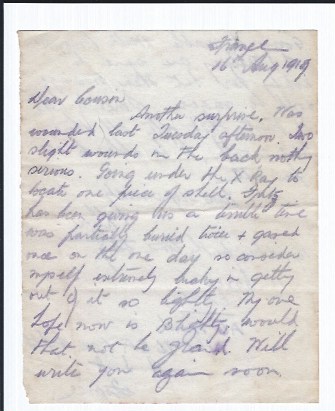 France
16th Aug 1917
Dear Cousin
Another surprise. Was
wounded last Tuesday afternoon. Two
slight wounds in the back nothing
serious. Going under the X Ray to
locate one piece of shell. Fritz
has been giving us a time
was partially buried twice & gassed
once on the one day so consider
myself extremely lucky in getting
out of it so light. My one
hope now is Blighty, would
that not be grand. Will
write you again soon